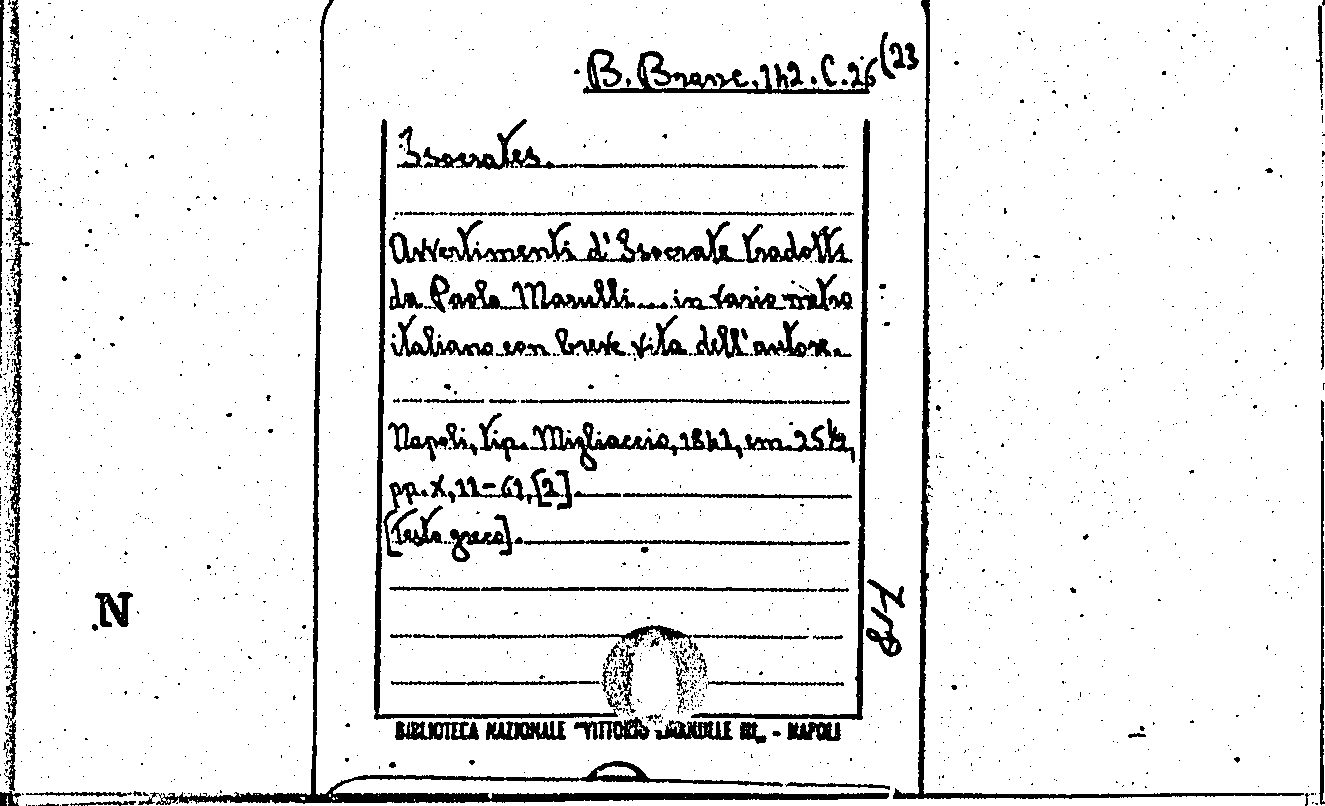 B. Branc. 142. C. 26 (23
Isocrates.
Avvertimenti d'Isocrate tradotti
da Paolo Marulli ... in vario metro
italiano con breve vita dell'autore.
Napoli, Tip. Migliaccio, 1841, cm. 25½,
pp. X, 11-61, [2].
[Testo greco].
N
BIBLIOTECA NAZIONALE "VITTORIO EMANUELE III" - NAPOLI